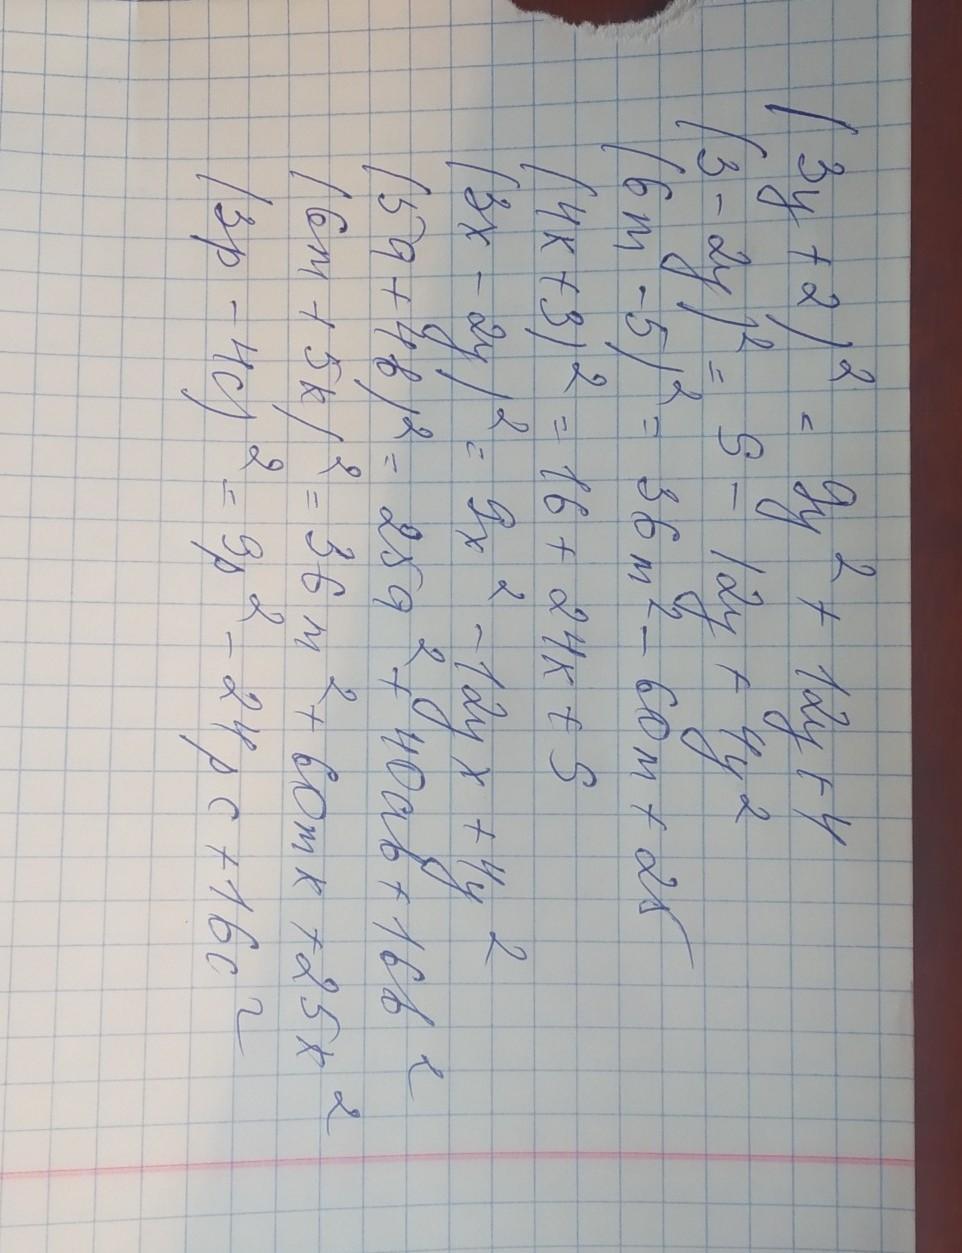 (3y + 2)² = 9y² + 12y + 4
(3 - 2y)² = 9 - 12y + 4y²
(6m - 5)² = 36m² - 60m + 25
(4к + 3)² = 16 + 24к + 9
(3x - 2y)² = 9x² - 12yx + 4y²
(5a + 4b)² = 25a² + 40ab + 16b²
(6m + 5к)² = 36m² + 60mк + 25к²
(3p - 4c)² = 9p² - 24pc + 16c²